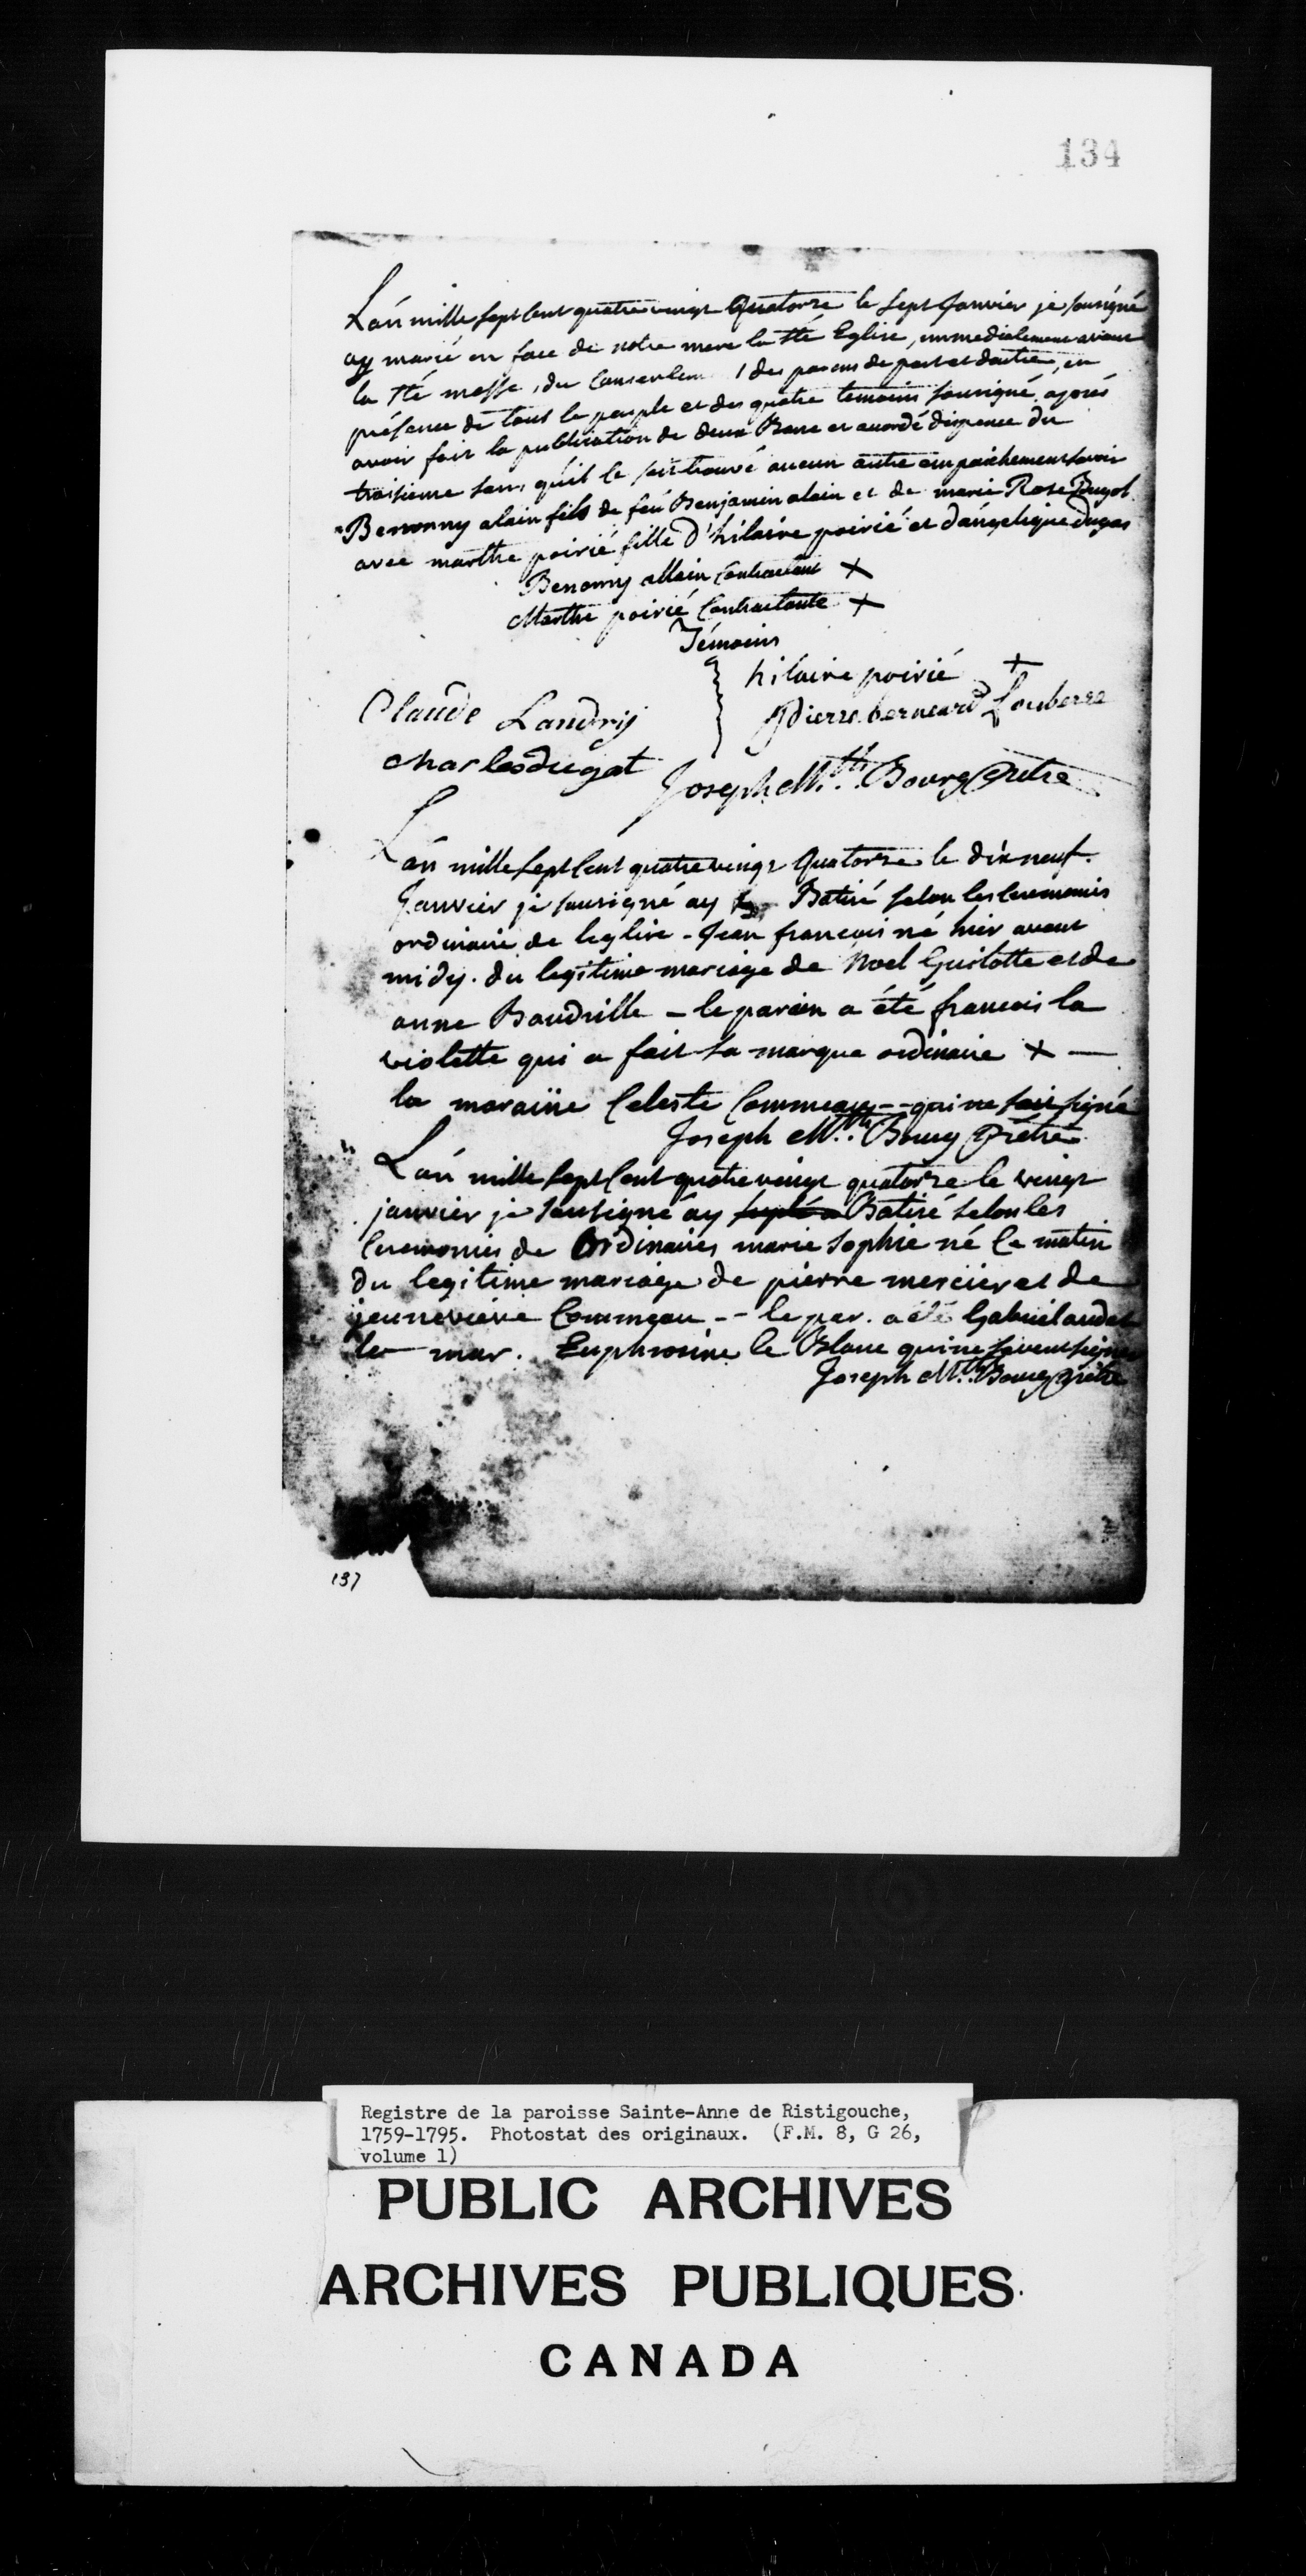 134
Lán mille sept Cent quatre vingt Quatorze le sept Janvier je sousigné
ay marié en face de notre mere la Sté Eglise, immediatement avant
la Sté messe, du Consentem des parens de part et dautre, en
présence de tout le peuple et des quatre temoins sousigné. aprés
avoir fait la publication de deux Bans et acordé dispence du
troisieme sans quil se soit trouvé aucun autre empaichement savoir
Benonny alain fils de feú Benjamin alain et de marie Rose Bugol
avec marthe poirié fille d'hilaire poirié et dángelique dugas
Benonny allain Contractant +
Marthe poirié Contractante +
Témoins
hilaire poirié +
Claude Landrij
Pierre bernard Louberre
charles dugat
Joseph M.th Bourg Prêtre
Lán mille sept Cent quatre vingt Quatorze le dix neuf
Janvier je sousigné ay Batisé selon les Ceremonies
ordinaire de leglise - Jean francois né hier avant
midy. du legitime mariage de Noel Guilotte et de
anne Baudville - le parein a été francois la
violette qui a fait sa marque ordinaire + -
la maraine Celeste Commeau -- qui ne sait signé
Joseph M.th Bourg Prêtre
Lán mille sept Cent quatre vingt quatorze le vingt
janvier je sousigné áy Batisé selon les
Ceremonies de Ordinaires marie sophie né ce matin
du legitime mariage de pierre mercier et de
jenneviéve Commeau -- le par. a été Gabriel audet
la mar. Euphrosine le Blanc qui ne savent signer
Joseph M.th Bourg prêtre
137
Registre de la paroisse Sainte-Anne de Ristigouche,
1759-1795. Photostat des originaux. (F.M. 8, G 26,
volume 1)
PUBLIC ARCHIVES
ARCHIVES PUBLIQUES
CANADA